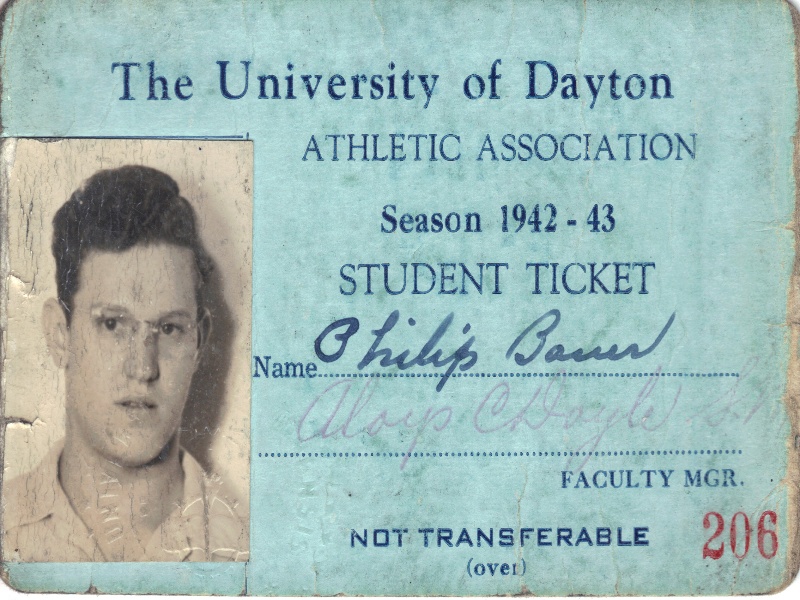 The University of Dayton
ATHLETIC ASSOCIATION
Season 1942 - 43
STUDENT TICKET
Name Philip Bauer
Aloys C Doyle S.M
FACULTY MGR.
NOT TRANSFERABLE
(over)
206